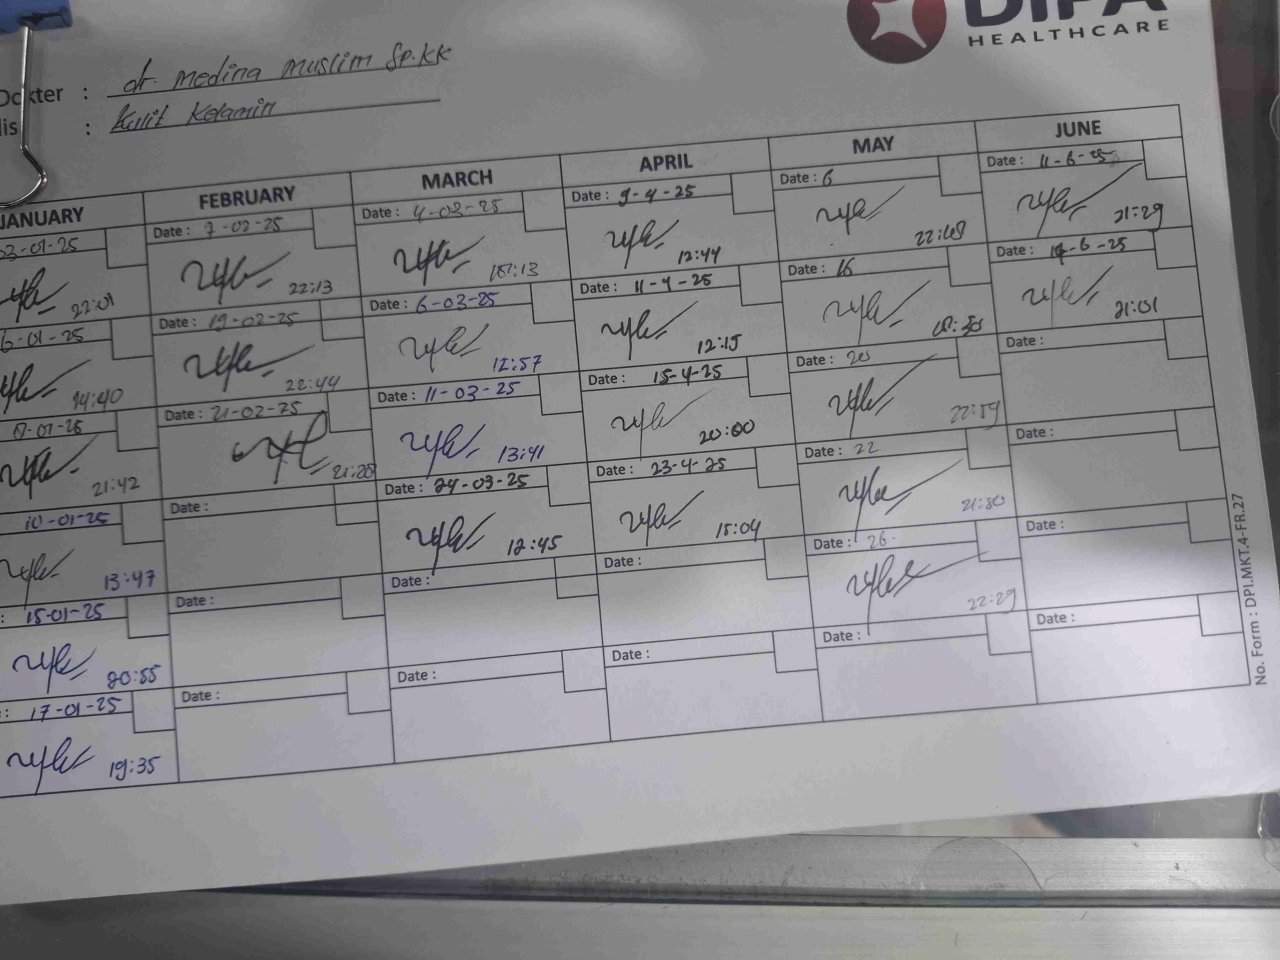 DIPA
HEALTHCARE
Dokter : dr. Medina Muslim Sp.KK
lis : Kulit Kelamin
JANUARY
03-01-25
22:01
6-01-25
14:40
21:42
10-01-25
13:47
15-01-25
20:55
17-01-25
19:35
FEBRUARY
Date : 7-02-25
22:13
Date : 19-02-25
22:44
Date : 21-02-25
Date :
Date :
Date :
MARCH
Date : 4-03-25
Date : 6-03-25
12:57
Date : 11-03-25
13:41
Date : 24-03-25
12:45
Date :
Date :
APRIL
Date : 9-4-25
12:44
Date : 11-4-25
12:15
Date : 15-4-25
20:00
Date : 23-4-25
15:04
Date :
Date :
MAY
Date : 6
Date : 16
Date : 20
Date : 22
21:30
Date : 26
22:29
Date :
JUNE
Date : 11-6-25
21:29
Date : 14-6-25
21:01
Date :
Date :
Date :
Date :
No. Form : DPI.MKT.4-FR.27